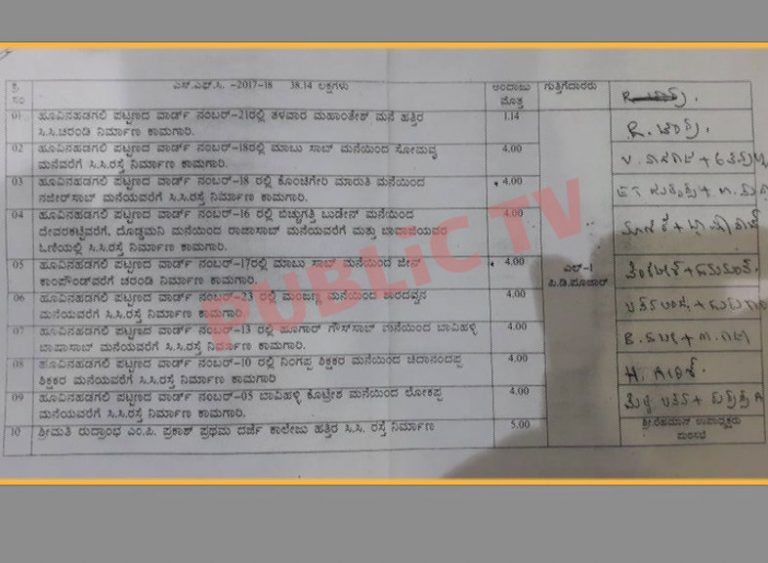 ಕ್ರ ಸಂ ಎಸ್.ಎಫ್.ಸಿ. -2017-18 38.14 ಲಕ್ಷಗಳು ಅಂದಾಜು ಮೊತ್ತ ಗುತ್ತಿಗೆದಾರರು
01 ಹೂವಿನಹಡಗಲಿ ಪಟ್ಟಣದ ವಾರ್ಡ್ ನಂಬರ್-21ರಲ್ಲಿ ತಳವಾರ ಮಹಾಂತೇಶ್ ಮನೆ ಹತ್ತಿರ 1.14
ಸಿ.ಸಿ.ಚರಂಡಿ ನಿರ್ಮಾಣ ಕಾಮಗಾರಿ.
02 ಹೂವಿನಹಡಗಲಿ ಪಟ್ಟಣದ ವಾರ್ಡ್ ನಂಬರ್-18ರಲ್ಲಿ ಮಾಬು ಸಾಬ್ ಮನೆಯಿಂದ ಸೋಮವ್ವ 4.00
ಮನೆವರೆಗೆ ಸಿ.ಸಿ.ರಸ್ತೆ ನಿರ್ಮಾಣ ಕಾಮಗಾರಿ.
03 ಹೂವಿನಹಡಗಲಿ ಪಟ್ಟಣದ ವಾರ್ಡ್ ನಂಬರ್-18 ರಲ್ಲಿ ಕೊಂಚಿಗೇರಿ ಮಾರುತಿ ಮನೆಯಿಂದ 4.00
ನಜೀರ್‌ಸಾಬ್ ಮನೆಯವರೆಗೆ ಸಿ.ಸಿ.ರಸ್ತೆ ನಿರ್ಮಾಣ ಕಾಮಗಾರಿ.
04 ಹೂವಿನಹಡಗಲಿ ಪಟ್ಟಣದ ವಾರ್ಡ್ ನಂಬರ್-16 ರಲ್ಲಿ ಬಿಚ್ಚುಗತ್ತಿ ಬುಡೇನ್ ಮನೆಯಿಂದ 4.00
ದೇವರಕಟ್ಟಿವರೆಗೆ, ದೊಡ್ಡಮನಿ ಮನೆಯಿಂದ ರಾಜಾಸಾಬ್ ಮನೆಯವರೆಗೆ ಮತ್ತು ಬಾವಾಜಿಯವರ
ಓಣಿಯಲ್ಲಿ ಸಿ.ಸಿ.ರಸ್ತೆ ನಿರ್ಮಾಣ ಕಾಮಗಾರಿ.
05 ಹೂವಿನಹಡಗಲಿ ಪಟ್ಟಣದ ವಾರ್ಡ್ ನಂಬರ್-17ರಲ್ಲಿ ಮಾಬು ಸಾಬ್ ಮನೆಯಿಂದ ಜೀನ್ 4.00 ಎಲ್-1
ಕಾಂಪೌಂಡ್‌ವರೆಗೆ ಚರಂಡಿ ನಿರ್ಮಾಣ ಕಾಮಗಾರಿ. ಪಿ.ಡಿ.ಪೂಜಾರ್
06 ಹೂವಿನಹಡಗಲಿ ಪಟ್ಟಣದ ವಾರ್ಡ್ ನಂಬರ್-23 ರಲ್ಲಿ ಮಂಜಣ್ಣ ಮನೆಯಿಂದ ಶಾರದವ್ವನ 4.00
ಮನೆಯವರೆಗೆ ಸಿ.ಸಿ.ರಸ್ತೆ ನಿರ್ಮಾಣ ಕಾಮಗಾರಿ.
07 ಹೂವಿನಹಡಗಲಿ ಪಟ್ಟಣದ ವಾರ್ಡ್ ನಂಬರ್-13 ರಲ್ಲಿ ಹೂಗಾರ್ ಗೌಸ್‌ಸಾಬ್ ಮನೆಯಿಂದ ಬಾವಿಹಳ್ಳಿ 4.00
ಬಾಷಾಸಾಬ್ ಮನೆಯವರೆಗೆ ಸಿ.ಸಿ.ರಸ್ತೆ ನಿರ್ಮಾಣ ಕಾಮಗಾರಿ.
08 ಹೂವಿನಹಡಗಲಿ ಪಟ್ಟಣದ ವಾರ್ಡ್ ನಂಬರ್-10 ರಲ್ಲಿ ನಿಂಗಪ್ಪ ಶಿಕ್ಷಕರ ಮನೆಯಿಂದ ಚಿದಾನಂದಪ್ಪ 4.00
ಶಿಕ್ಷಕರ ಮನೆಯವರೆಗೆ ಸಿ.ಸಿ.ರಸ್ತೆ ನಿರ್ಮಾಣ ಕಾಮಗಾರಿ
09 ಹೂವಿನಹಡಗಲಿ ಪಟ್ಟಣದ ವಾರ್ಡ್ ನಂಬರ್-05 ಬಾವಿಹಳ್ಳಿ ಕೊಟ್ರೇಶ ಮನೆಯಿಂದ ಲೋಕಪ್ಪ 4.00
ಮನೆಯವರೆಗೆ ಸಿ.ಸಿ.ರಸ್ತೆ ನಿರ್ಮಾಣ ಕಾಮಗಾರಿ.
10 ಶ್ರೀಮತಿ ರುದ್ರಾಂಭ ಎಂ.ಪಿ. ಪ್ರಕಾಶ್ ಪ್ರಥಮ ದರ್ಜೆ ಕಾಲೇಜು ಹತ್ತಿರ ಸಿ.ಸಿ. ರಸ್ತೆ ನಿರ್ಮಾಣ 5.00 ಶ್ರೀ.ರೆಹಮಾನ್ ಉಪಾಧ್ಯಕ್ಷರು
ಪುರಸಭೆ
PUBLiC TV